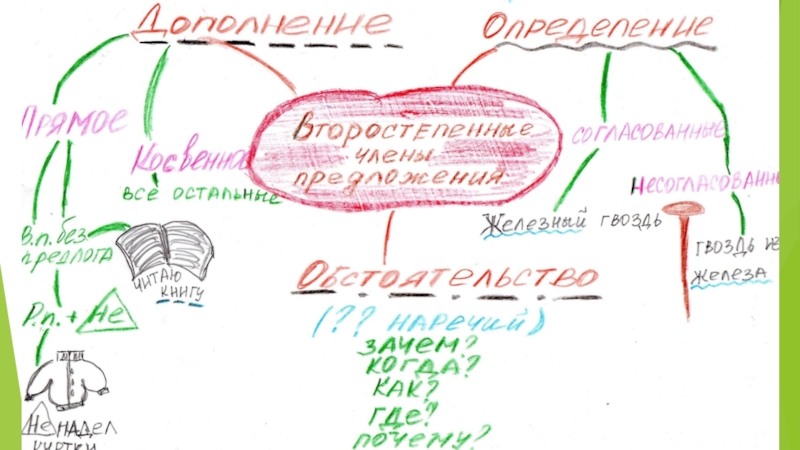 Дополнение
Определение
Второстепенные
члены
предложения
Прямое
Косвенное
все остальные
В.п. без
предлога
читаю
книгу
Р.п. + Не
Не надел
куртки
согласованные
Железный гвоздь
Несогласованные
гвоздь из
железа
Обстоятельство
(?? наречий)
зачем?
когда?
как?
где?
почему?